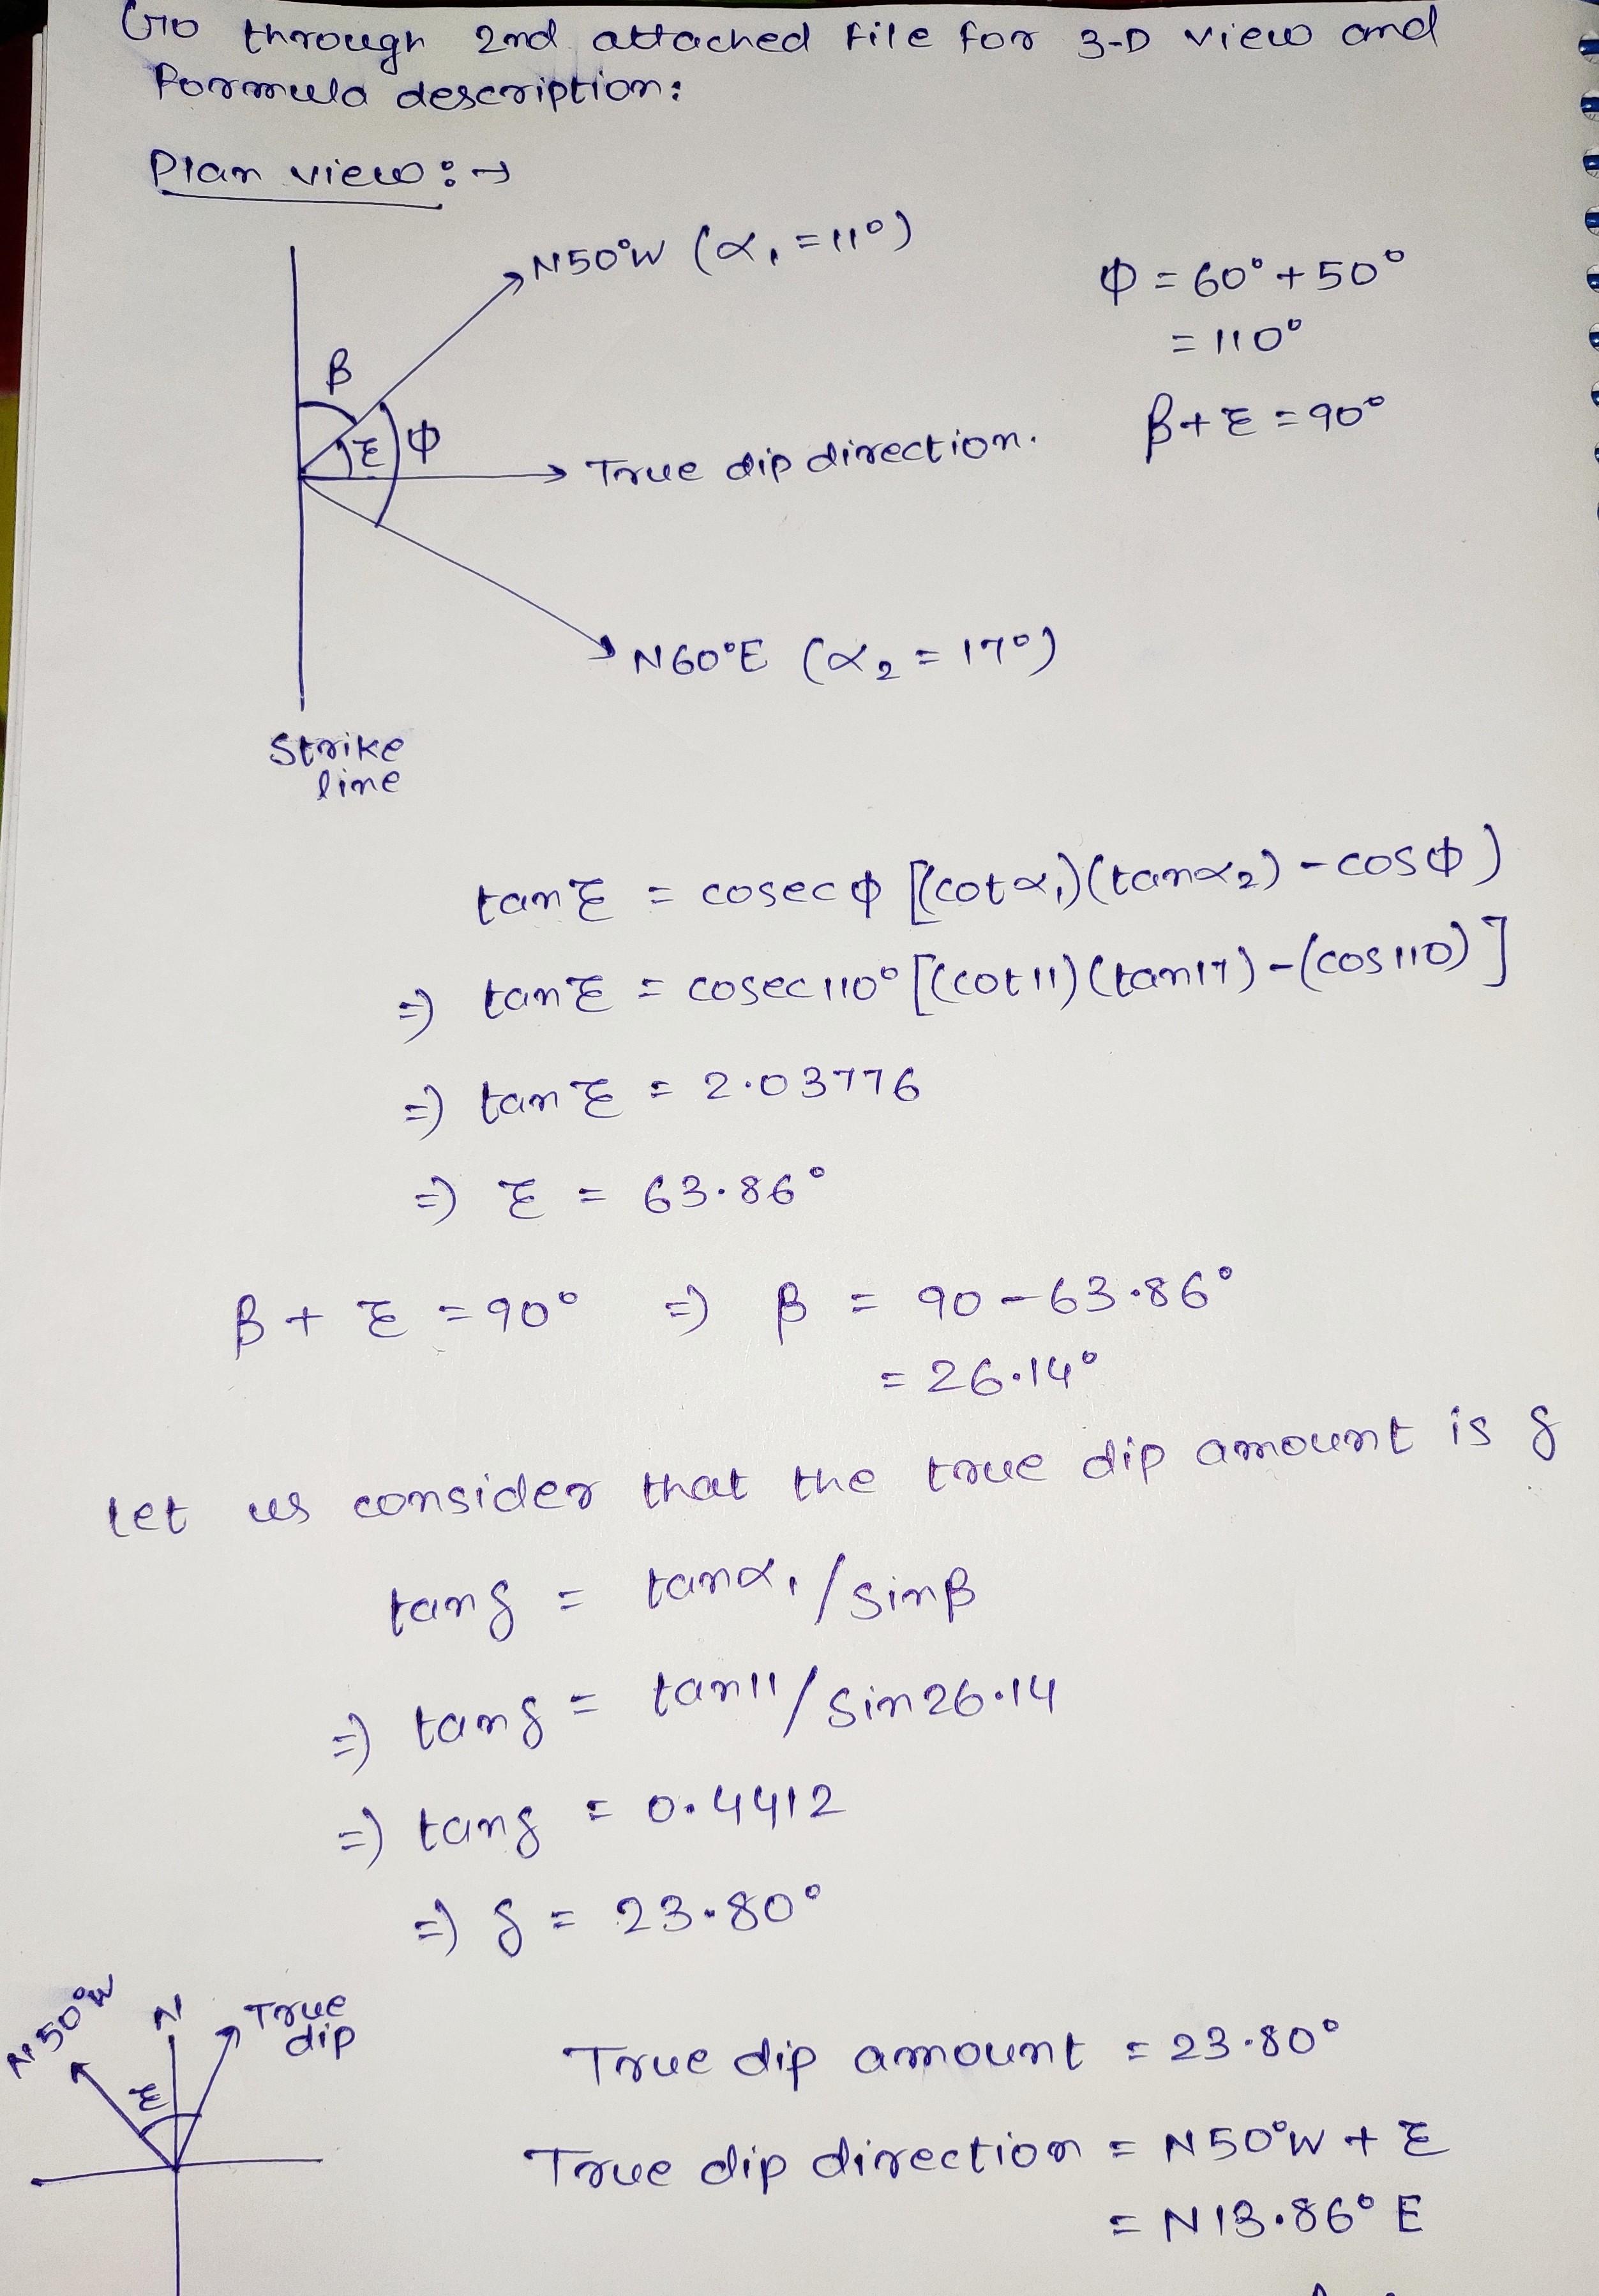 Go through 2nd attached file for 3-D view and
Formula description:
Plan view:→
N50°W (α₁=11°)
Φ = 60°+50°
= 110°
β
ε
Φ
β+ε = 90°
True dip direction.
N60°E (α₂ = 17°)
Strike
line
tanε = cosecφ [(cotα₁)(tanα₂) - cosφ)
⇒ tanε = cosec110° [(cot11)(tan17)-(cos110)]
⇒ tanε = 2.03776
⇒ ε = 63.86°
β + ε = 90° ⇒ β = 90-63.86°
= 26.14°
let us consider that the true dip amount is δ
tanδ = tanα₁/sinβ
⇒ tanδ = tan11/sin26.14
⇒ tanδ = 0.4412
⇒ δ = 23.80°
N50°W
N
True
dip
ε
True dip amount = 23.80°
True dip direction = N50°W + ε
= N13.86°E